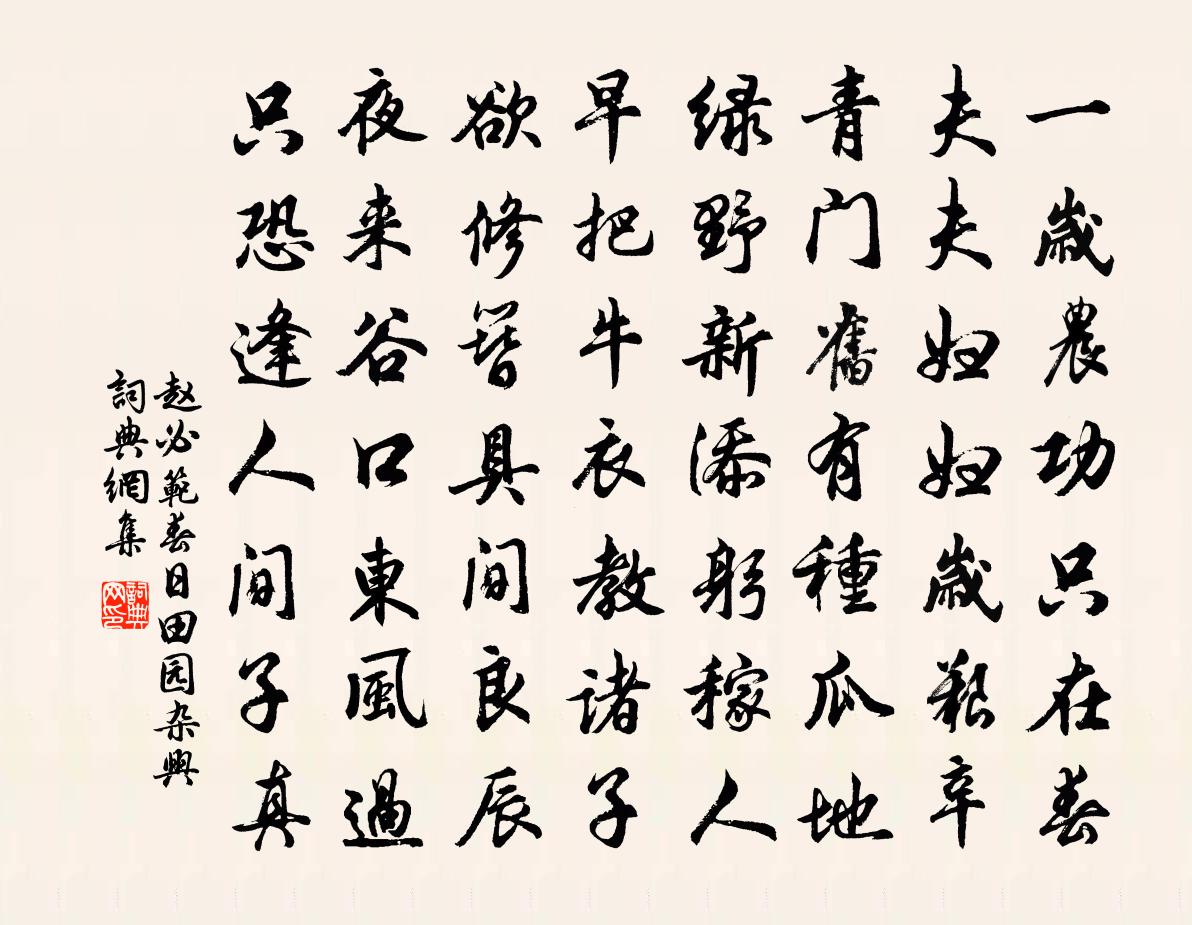 一歲農功只在春
夫夫妇妇歲艱辛
青门舊有種瓜地
绿野新添躬稼人
早把牛衣教诸子
欲修簪具间良辰
夜来谷口東風過
只恐逢人间子真
赵必範春日田园杂興
詞典網集
詞典网印